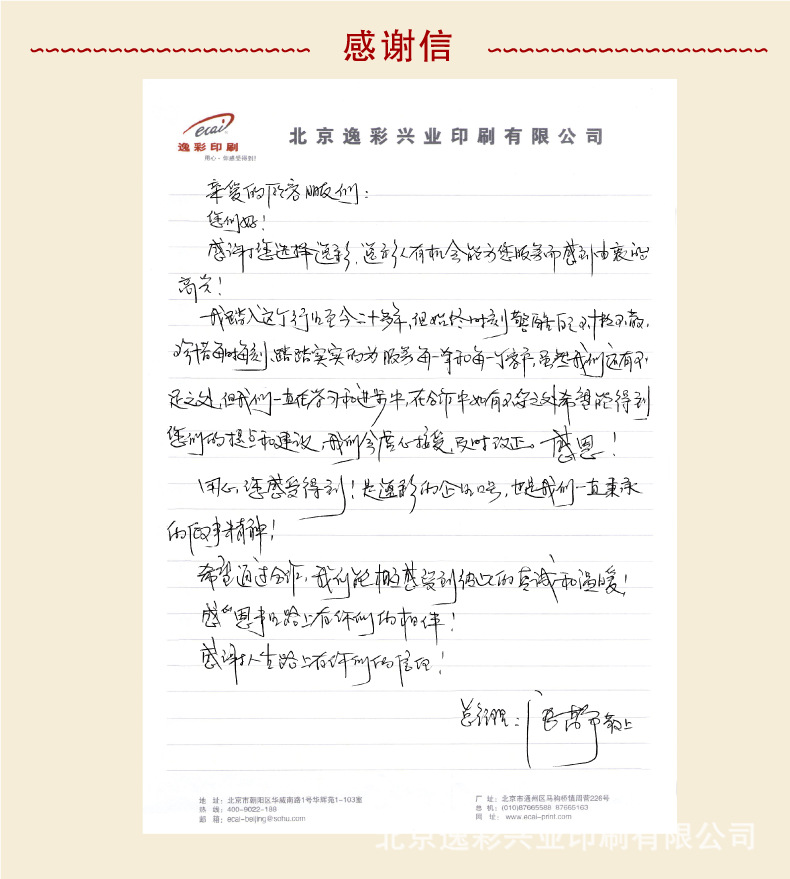 感谢信
ecai
逸彩印刷
用心·你感受得到!
北京逸彩兴业印刷有限公司
亲爱的所有朋友们：
您们好！
感谢您选择逸彩，逸彩人有机会能为您服务而感到由衷的
高兴！
我踏入这个行业至今二十多年，但始终时刻警醒自己不松不散，
珍惜每时每刻、踏踏实实的为服务每一单和每一个客户，虽然我们还有不
足之处，但我们一直在学习和进步中，在合作中如有不足之处希望能得到
您们的提点和建议，我们会虚心接受，及时改正。感恩！
用心，您感受得到！是逸彩的企业口号，也是我们一直秉承
的做事精神！
希望通过合作，我们能相互感受到彼此的真诚和温暖！
感恩事业路上有你们的相伴！
感谢人生路上有你们的信任！
总经理： 敬上
地 址：北京市朝阳区华威南路1号华辉苑1-103室
热 线：400-9022-188
邮 箱：ecai-beijing@sohu.com
厂 址：北京市通州区马驹桥镇周营226号
总 机：(010)87665588 87665163
网 址： www.ecai-print.com
北京逸彩兴业印刷有限公司